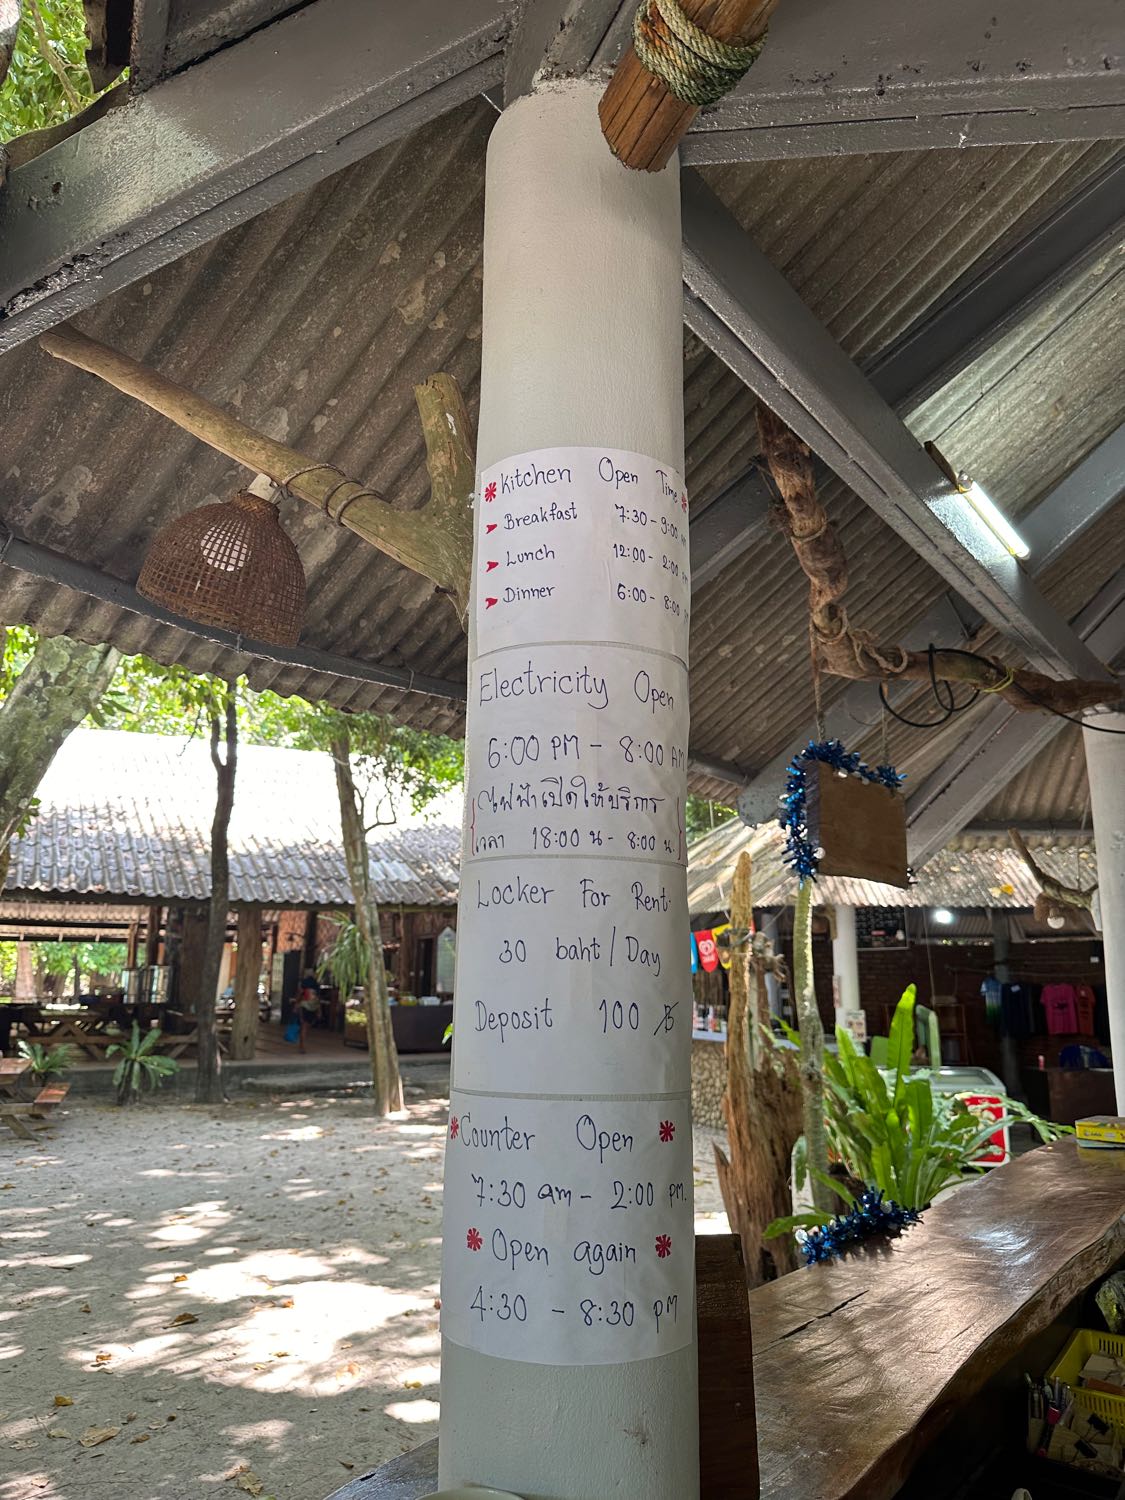 Kitchen Open Time
Breakfast 7:30 - 9:00 AM
Lunch 12:00 - 2:00 PM
Dinner 6:00 - 8:00
Electricity Open
6:00 PM - 8:00 AM
ไฟฟ้าเปิดให้บริการ
เวลา 18:00 น - 8:00 น.
Locker For Rent
30 baht / Day
Deposit 100 ฿
Counter Open
7:30 am - 2:00 pm.
Open again
4:30 - 8:30 pm